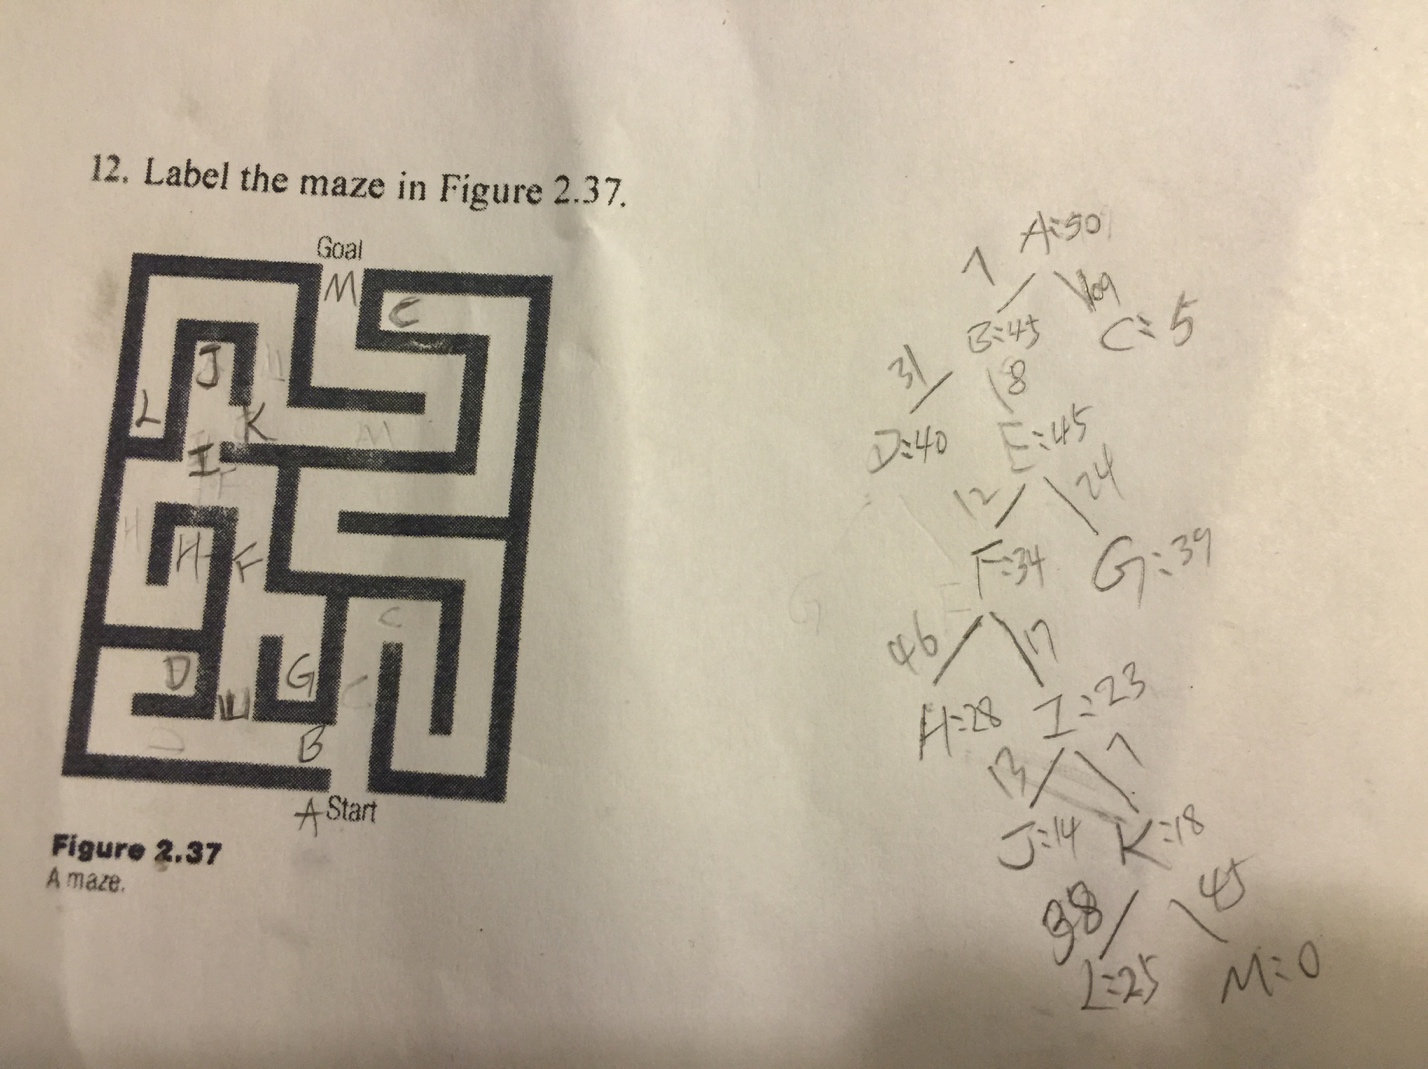 12. Label the maze in Figure 2.37.
Goal
M
C
J
L
K
I
H
F
C
D
G
E
B
A Start
Figure 2.37
A maze.
A=50
7
109
B=45
C=5
31
8
D=40
E=45
12
24
F=34
G=39
46
17
H=28
I=23
13
7
J=14
K=18
38
45
L=25
M=0